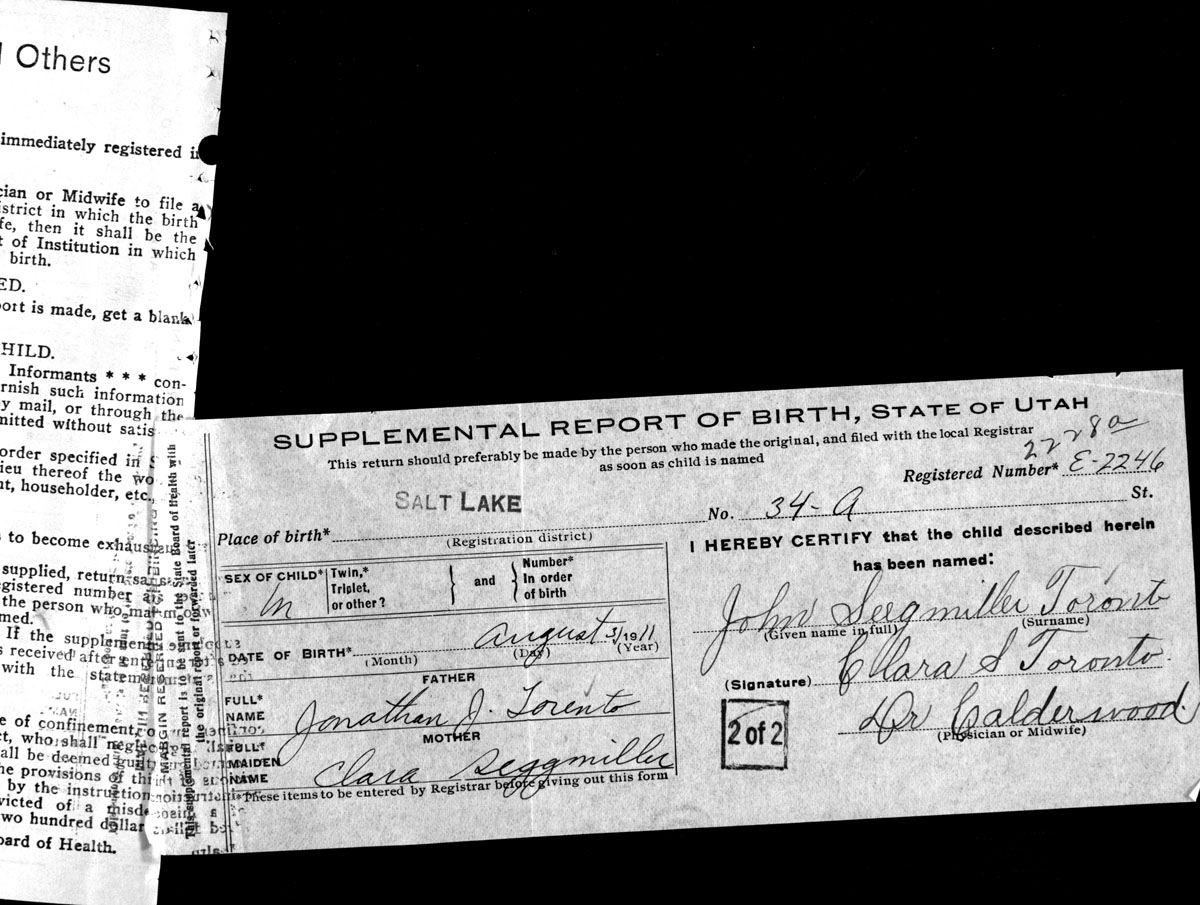 Others
immediately registered
cian or Midwife to file a
istrict in which the birth
fe, then it shall be the
t of Institution in which
birth.
ED.
port is made, get a blank
HILD.
Informants * * * con-
rnish such information
y mail, or through the
mitted without satis
order specified in
ieu thereof the wo
nt, householder, etc.,
to become exhaus
supplied, return
egistered number
the person who
med.
If the supplement
s received after
with the statem
e of confinement,
ct, who shall neglec
all be deemed guilty
he provisions of thi
by the instruction
victed of a misde
two hundred dollar
oard of Health.
MARGIN RESERVED FOR BINDING
This supplemental report is to be sent to the State Board of Health with
the original report or forwarded later
SUPPLEMENTAL REPORT OF BIRTH, STATE OF UTAH
This return should preferably be made by the person who made the original, and filed with the local Registrar
as soon as child is named
2228a
Registered Number* E-2246
SALT LAKE
Place of birth*
(Registration district)
No. 34-A St.
SEX OF CHILD* m
Twin,*
Triplet,
or other?
and
Number*
In order
of birth
DATE OF BIRTH* August 3/1911
(Month) (Day) (Year)
FATHER
FULL*
NAME Jonathan J. Toronto
MOTHER
FULL*
MAIDEN
NAME Clara Seggmiller
*These items to be entered by Registrar before giving out this form
I HEREBY CERTIFY that the child described herein
has been named:
John Seegmiller Toronto
(Given name in full) (Surname)
(Signature) Clara S Toronto.
Dr Calderwood.
(Physician or Midwife)
2 of 2